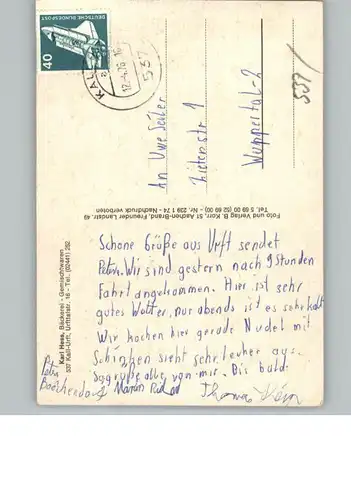 DEUTSCHE BUNDESPOST
40
KALL
a
12.4.76-16
537
537/
An Uwe Seiler
Zietenstr 1
Wuppertal-2
Foto und Verlag B. Korr, 51 Aachen-Brand, Freunder Landstr. 49
Tel. 5 69 69 (52 66 00) - Nr. 239 74 - Nachdruck verboten
Karl Hess, Bäckerei - Gemischtwaren
537 Kall-Urft, Urfttalstr. 16 - Tel. (02441) 282
Schöne Grüße aus Urft sendet
Peter. Wir sind gestern nach 9 Stunden
Fahrt angekommen. Hier ist sehr
gutes Wetter, nur abends ist es sehr kalt
Wir kochen hier gerade Nudel mit
Schinken sieht sehr lecker aus.
grüße alle von mir. Bis bald.
Peter
Martin
Thomas